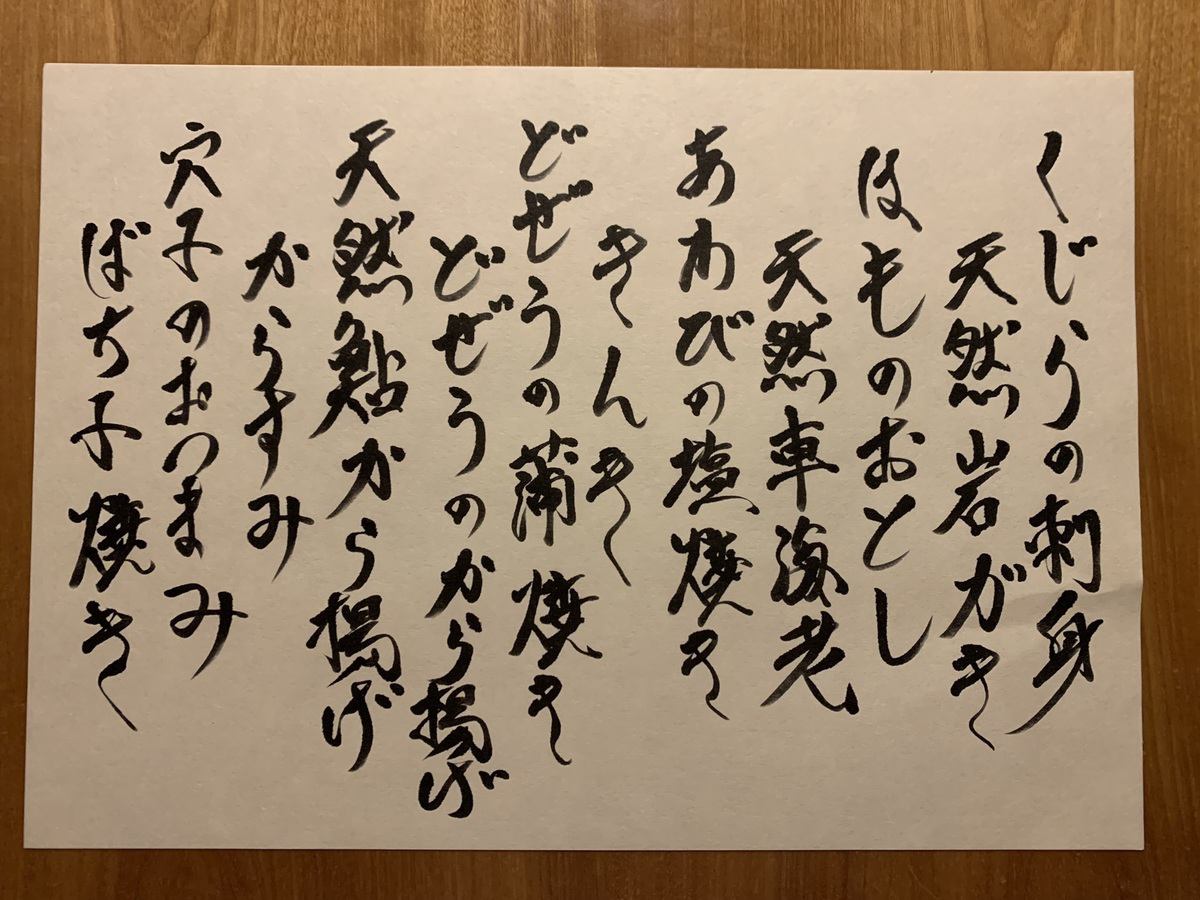 くじらの刺身
天然岩がき
はものおとし
天然車海老
あわびの塩焼き
きんき
どぜうの蒲焼き
どぜうのから揚げ
天然鮎から揚げ
からすみ
穴子のおつまみ
ばち子焼き